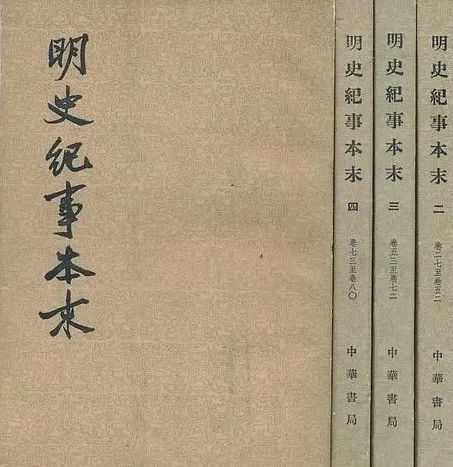 明史紀事本末
明史紀事本末
四
卷七三至卷八〇
中華書局
明史紀事本末
三
卷五三至卷七二
中華書局
明史紀事本末
二
卷二七至卷五二
中華書局